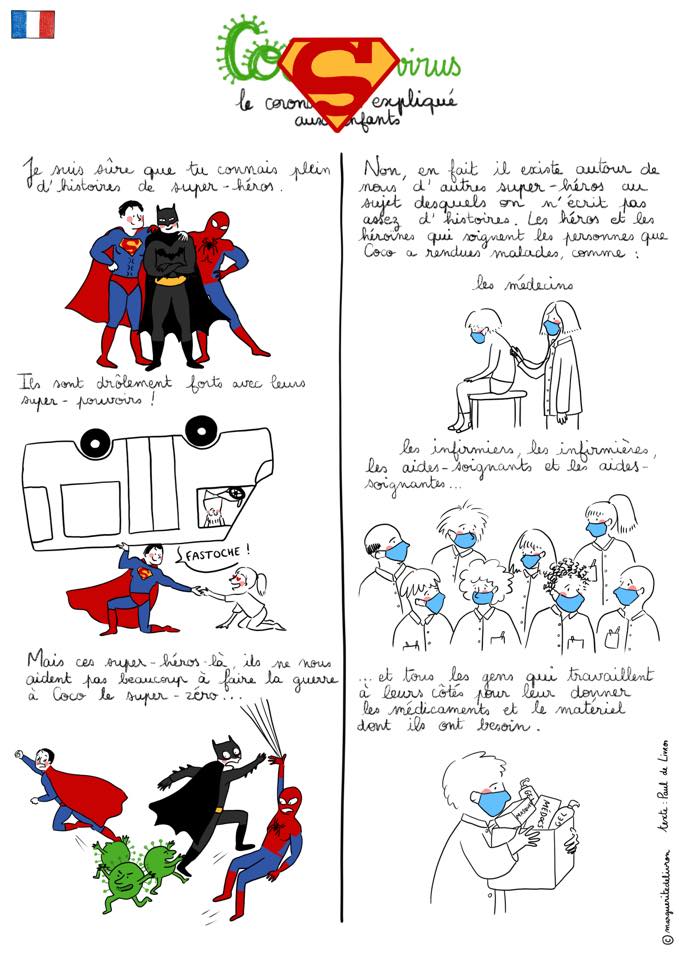 Co S virus
le coron expliqué
aux enfants
Je suis sûre que tu connais plein
d'histoires de super-héros.
Ils sont drôlement forts avec leurs
super-pouvoirs !
FASTOCHE !
Mais ces super-héros-là, ils ne nous
aident pas beaucoup à faire la guerre
à Coco le super-zéro...
Non, en fait il existe autour de
nous d'autres super-héros au
sujet desquels on n'écrit pas
assez d'histoires. Les héros et les
héroïnes qui soignent les personnes que
Coco a rendues malades, comme :
les médecins
les infirmiers, les infirmières,
les aides-soignants et les aides-
soignantes...
...et tous les gens qui travaillent
à leurs côtés pour leur donner
les médicaments et le matériel
dont ils ont besoin.
MÉDOCS
GEL
© margueritedelivron texte : Paul de Livron